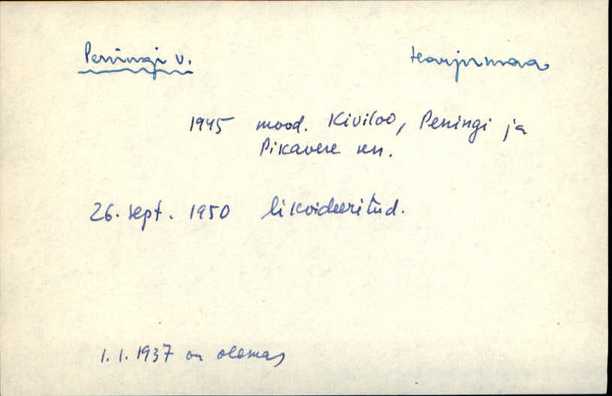 Peningi v. Harjumaa
1945 mood. Kiviloo, Peningi ja
Pikavere kn.
26. sept. 1950 likvideeritud.
1.1.1937 on olemas